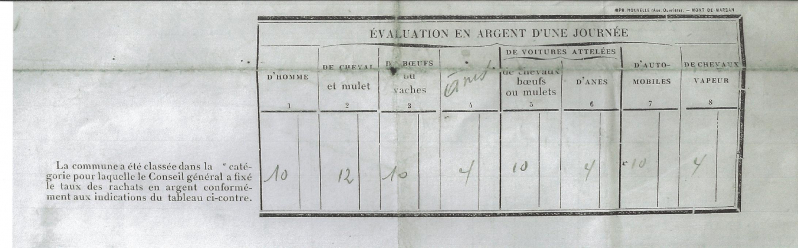 IMPR NOUVELLE (Ass. Ouvrière). — MONT DE MARSAN
ÉVALUATION EN ARGENT D'UNE JOURNÉE
D'HOMME
1
DE CHEVAL
et mulet
2
DE BŒUFS
ou
vaches
3
ânes
4
DE VOITURES ATTELÉES
de chevaux
bœufs
ou mulets
5
D'ANES
6
D'AUTO-
MOBILES
7
DE CHEVAUX
VAPEUR
8
La commune a été classée dans la e caté-
gorie pour laquelle le Conseil général a fixé
le taux des rachats en argent conformé-
ment aux indications du tableau ci-contre.
10 12 10 4 10 4 10 4